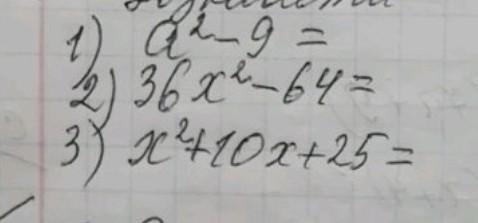 1) a²-9=
2) 36x²-64=
3) x²+10x+25=